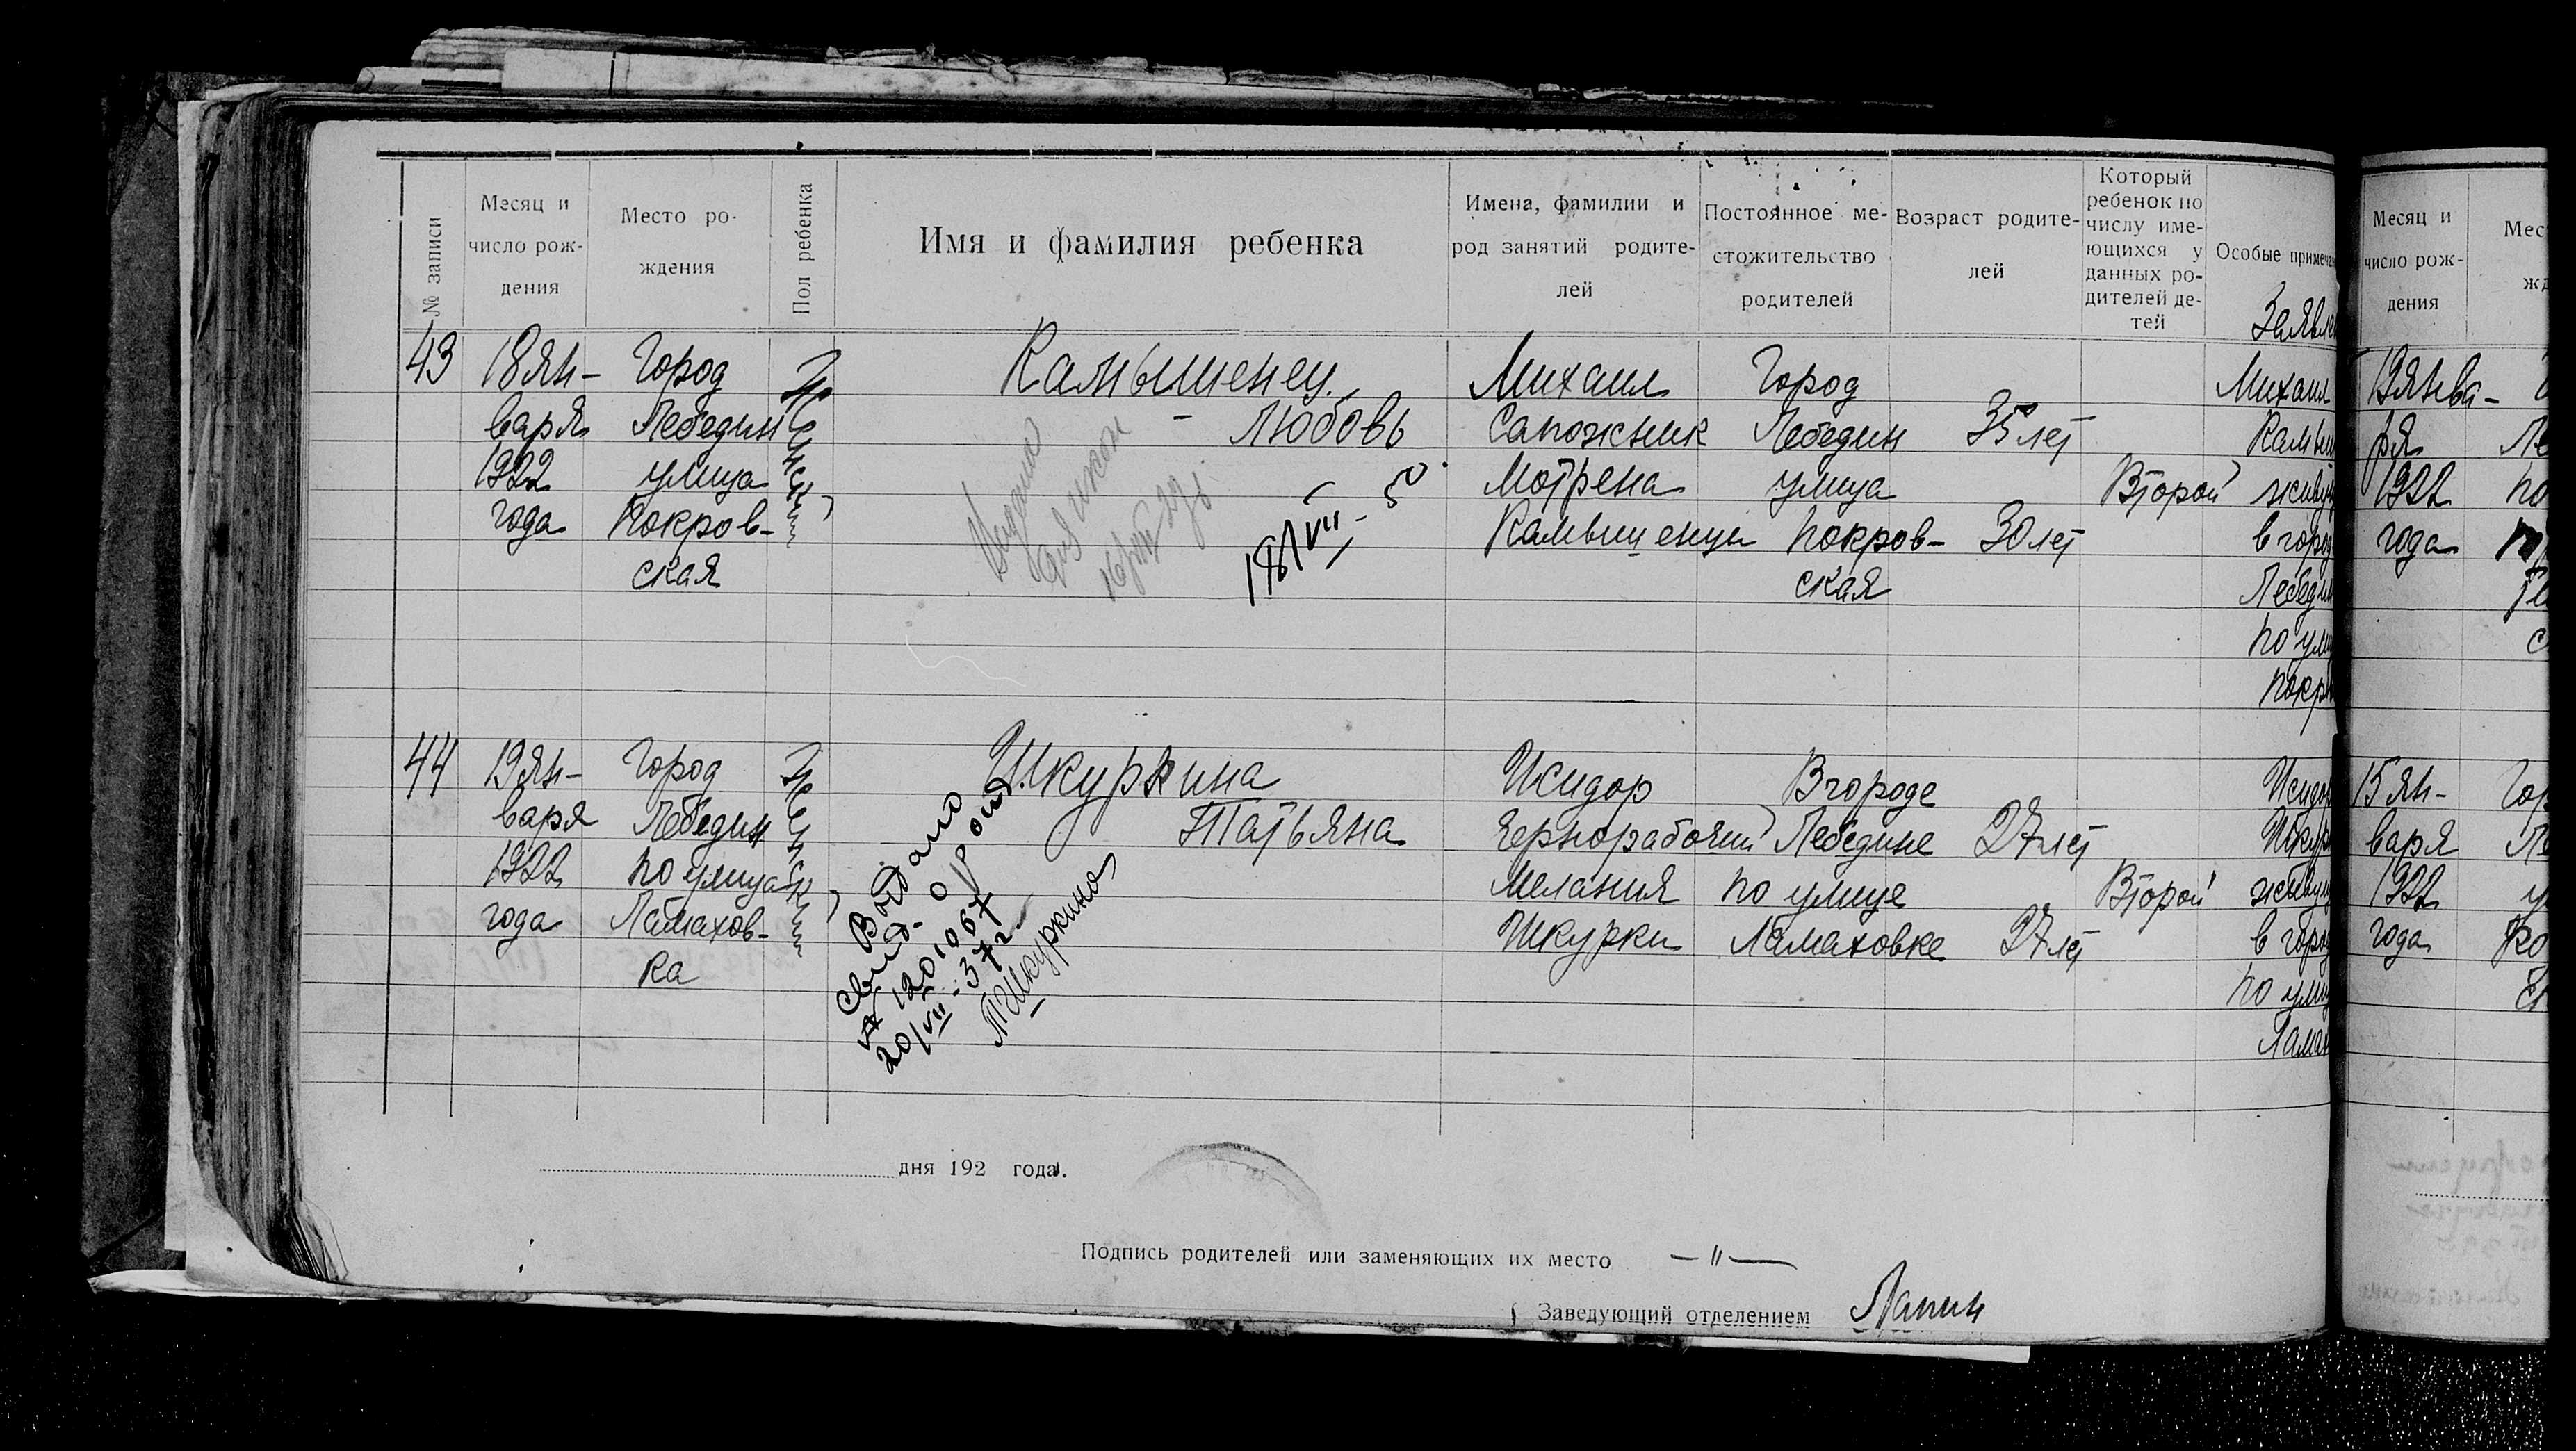 № записи
Месяц и число рождения
Место рождения
Пол ребенка
Имя и фамилия ребенка
Имена, фамилии и род занятий родителей
Постоянное местожительство родителей
Возраст родителей
Который ребенок по числу имеющихся у данных родителей детей
Особые примеча
43
18 ян-
варя
1922
года
Город
Лебедин
улица
Покров-
ская
Женский
Камышенец
- Любовь
Михаил
Сапожник
Мотрена
Камышенцы
Город
Лебедин
улица
Покров-
ская
35 лет
30 лет
Второй
Заявле
Михаил
Камыш
живущ
в город
Лебедин
по ули
Покро
44
19 ян-
варя
1922
года
Город
Лебедин
по улица
Ламахов-
ка
Женский
Шкуркина
Татьяна
Выдано
свид. о рожд.
№ 1201067
20/VII-37 г.
ТШкуркина
Исидор
Чернорабочий
Мелания
Шкурки
В городе
Лебедине
по улице
Ламаховке
27 лет
27 лет
Второй
Исидор
Шкур
живущ
в город
по ули
Ламах
дня 192 года.
Подпись родителей или заменяющих их место — " —
Заведующий отделением Лапин
Месяц и
число рож-
дения
Мес
жд
19 янва-
ря
1922
года
Ле
по
15 ян-
варя
1922
года
Гор
Ле
у